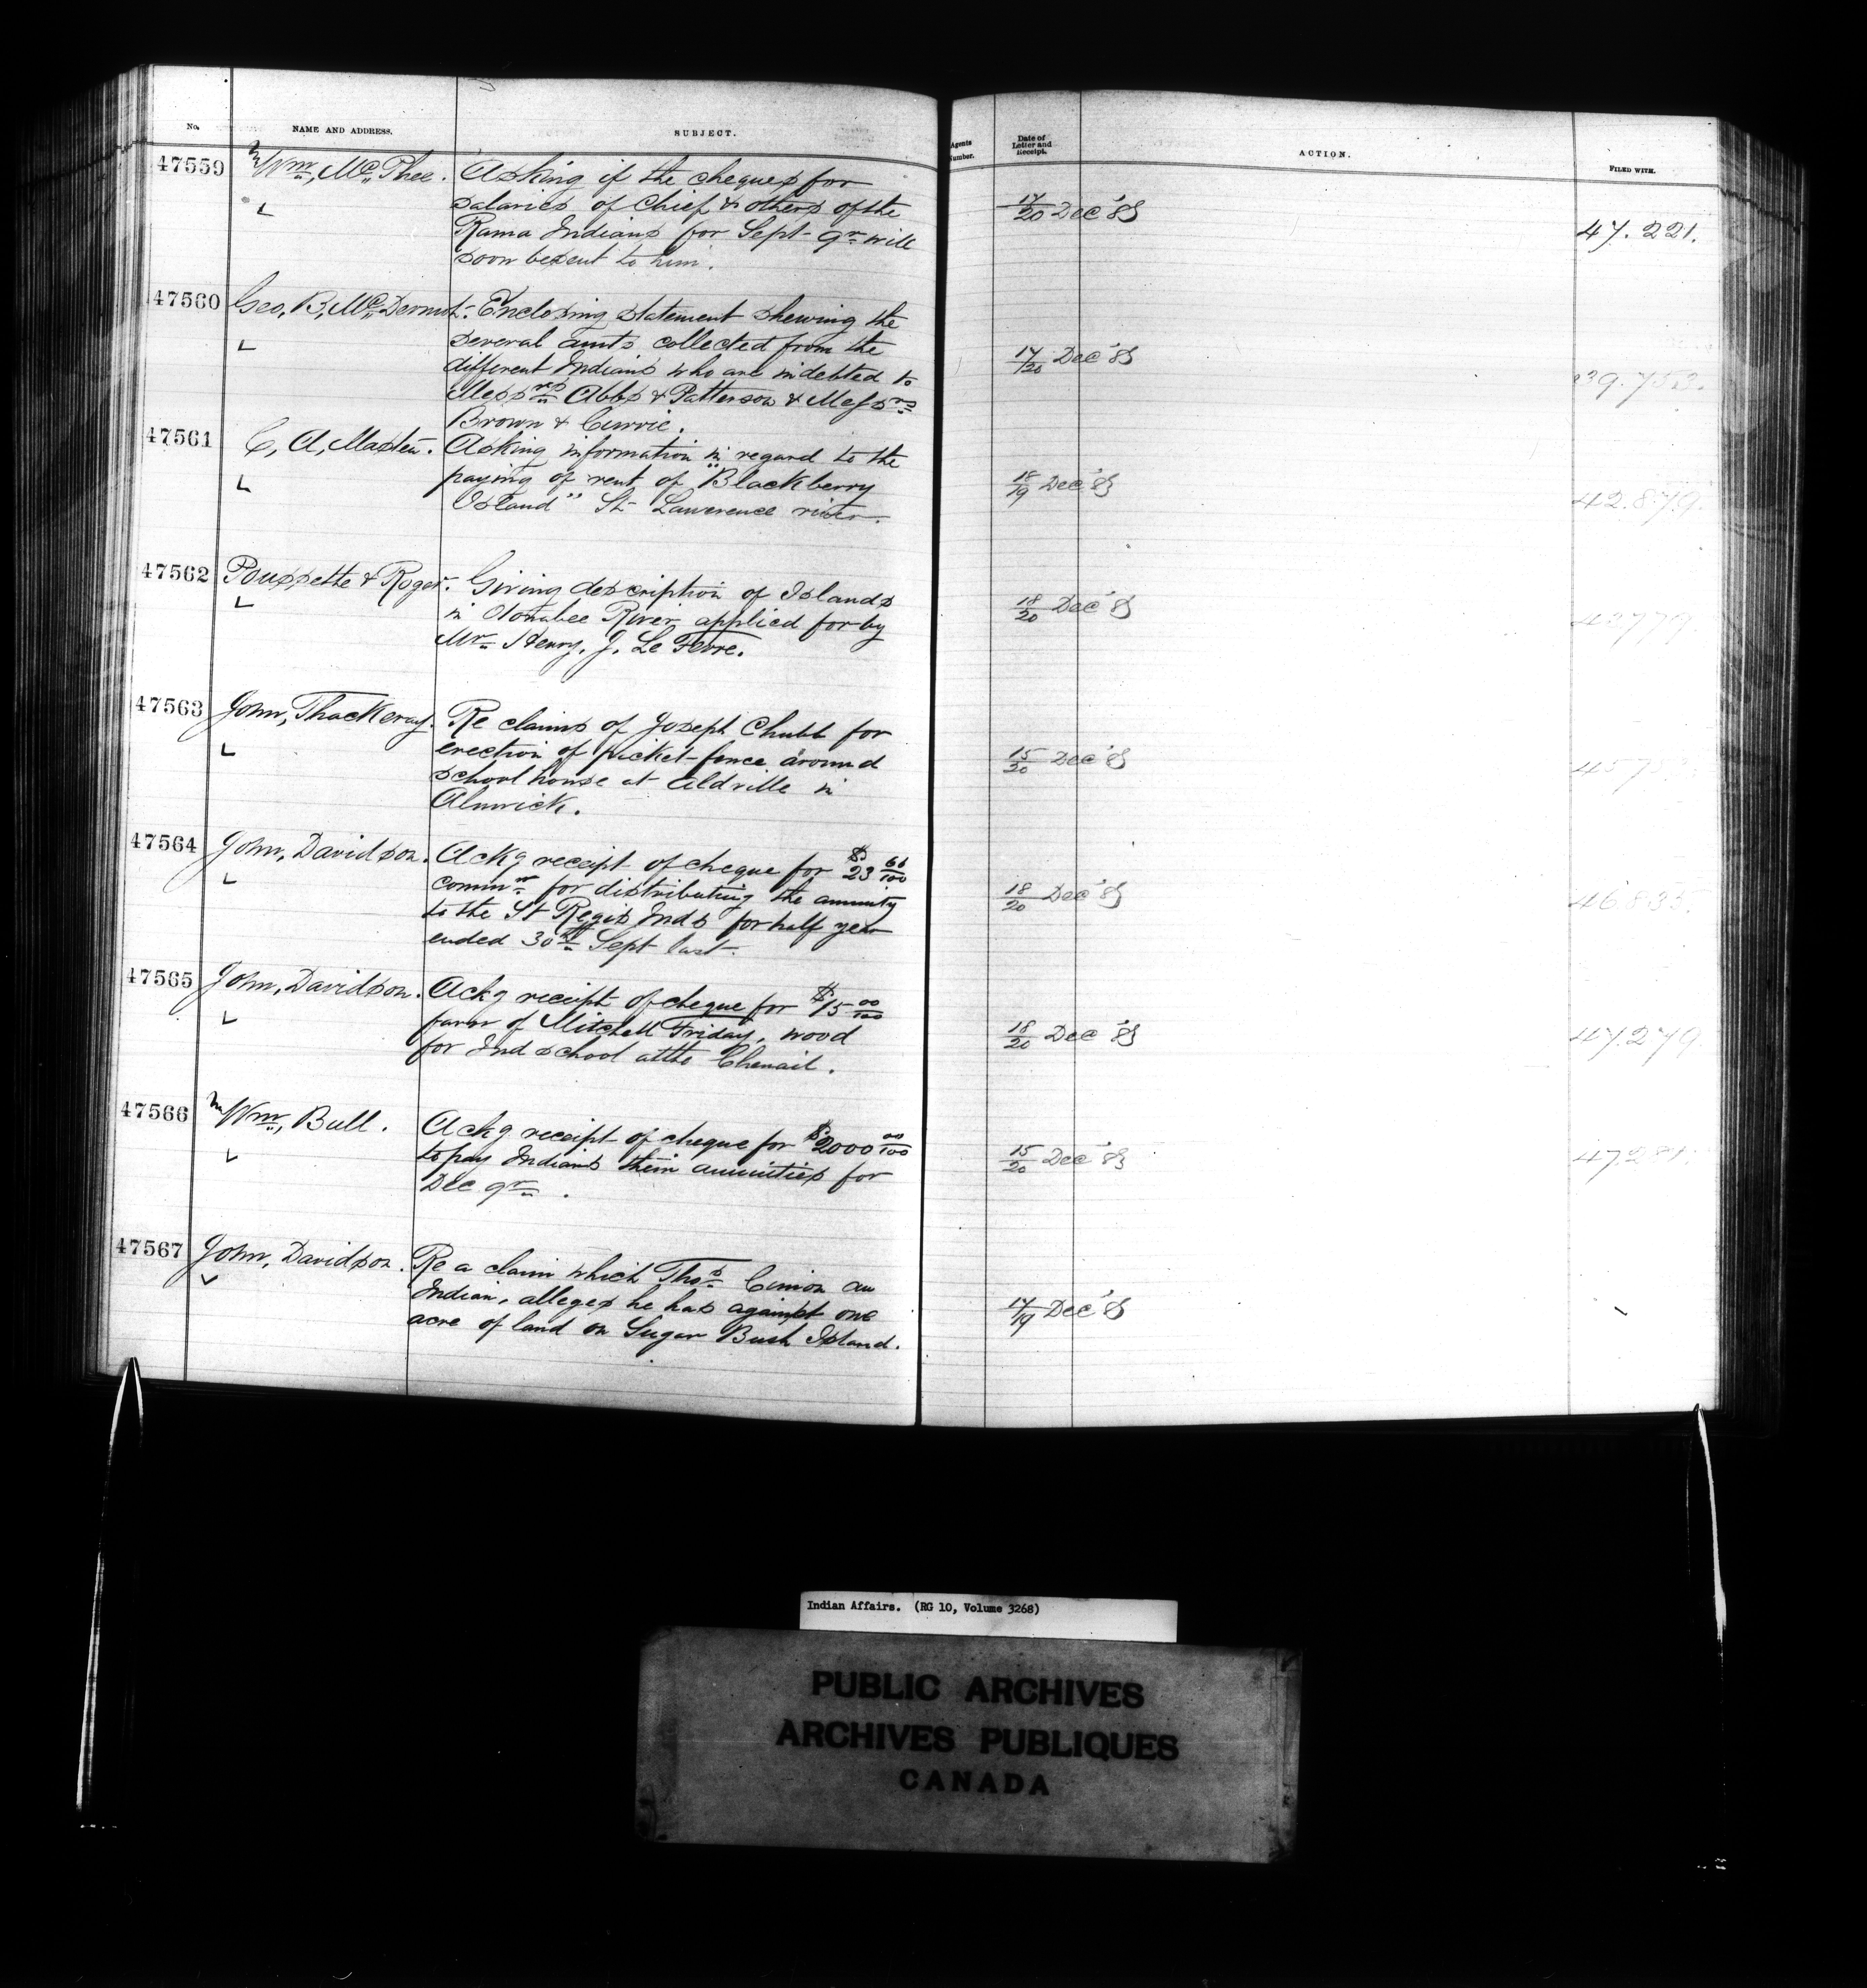 No. NAME AND ADDRESS. SUBJECT. Agents Number. Date of Letter and Receipt. ACTION. FILED WITH.
47559 Wm, McPhee. Asking if the cheques for
salaries of Chief & others of the 17/20 Dec '83
Rama Indians for Sept qr will 47.221.
soon be sent to him.
47560 Geo, B, McDermot. Enclosing statement shewing the
several amts collected from the 17/20 Dec '83
different Indians who are indebted to 39.753.
Messrs Abbs & Patterson & Messrs
Brown & Currie.
47561 C, A, Masten. Asking information in regard to the
paying of rent of "Blackberry 18/19 Dec '83
Island" St Lawerence river. 42.879.
47562 Poussette & Roger. Giving description of Islands
in Otonabee River applied for by 18/20 Dec '83
Mr Henry, J. Le Fevre. 42779
47563 John, Thackeray. Re claims of Joseph Chubb for
erection of picket-fence around 15/20 Dec '83
school house at Aldville in
Alnwick.
47564 John, Davidson. Ackg receipt of cheque for $23 66/100
commn for distributing the annuity 18/20 Dec '83
to the St Regis Inds for half year 46835.
ended 30th Sept last.
47565 John, Davidson. Ackg receipt of cheque for $15 00/100
favor of Mitchell Friday, wood 18/20 Dec '83
for Ind school at the Chenail. 47.279
47566 Wm, Bull. Ackg receipt of cheque for $2000 00/100
to pay Indians their annuities for 15/20 Dec '83
Dec qr.
47567 John, Davidson. Re a claim which Thos Cimon an
Indian, alleges he has against one 17/19 Dec '83
acre of land on Sugar Bush Island.
Indian Affairs. (RG 10, Volume 3268)
PUBLIC ARCHIVES
ARCHIVES PUBLIQUES
CANADA